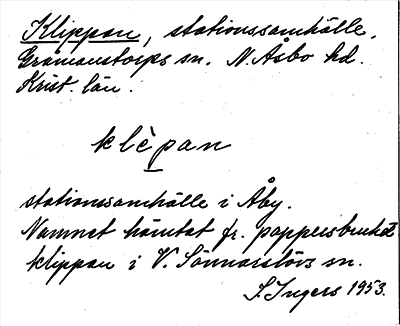 Klippan, stationssamhälle,
Gråmanstorps sn. N. Åsbo hd.
Krist. län.
klè̱pan
stationssamhälle i Åby.
Namnet hämtat fr. pappersbruket
klippan i V. Sönnarslövs sn.
S. Ingers 1953.